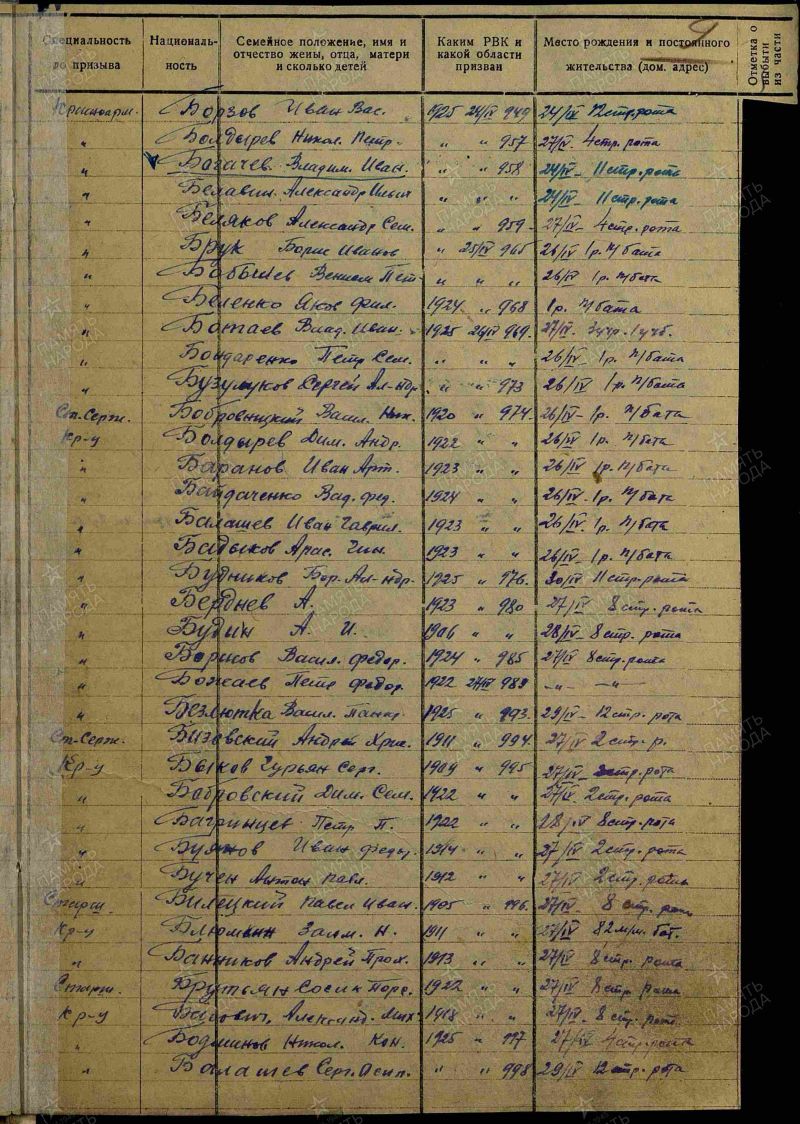 Специальность до призыва | Националь-ность | Семейное положение, имя и отчество жены, отца, матери и сколько детей | Каким РВК и какой области призван | Место рождения и постоянного жительства (дом. адрес) | Отметка о выбыти из части
Красноарм. Борзов Иван Вас. 1925 24/IV 949 24/IV 12 стр. рота
" Болдырев Никол. Петр. " " 957 27/IV 4 стр. рота
" Богачев Владим. Иван. " " 958 24/IV 11 стр. рота
" Белавин Александр Ильич " " " 24/IV 11 стр. рота
" Беляков Александр Сем. " " 959 27/IV 4 стр. рота
" Брук Борис Иванов " 25/IV 965 26/IV 1р. п/бата
" Бабышев Вениам Пет. " " " 26/IV 1р. п/бата
" Беленко Яков Фил. 1924 " 968 1р. п/бата
" Ботаев Влад. Иван. 1925 26/IV 969 27/IV
" Бондаренко Петр Сем. " " " 26/IV 1р. п/бата
" Бузулуков Сергей Ал-ндр. " " 973 26/IV 1р. п/бата
Ст. Серж. Бобровницкий Васил. Ник. 1920 " 974 26/IV 1р. п/бата
Кр-ц Болдырев Дим. Андр. 1922 " " 26/IV 1р. п/бата
" Баранов Иван Арт. 1923 " " 26/IV 1р. п/бата
" Байдаченко Вад. Фед. 1924 " " 26/IV 1р. п/бата
" Балашев Иван Гаврил. 1923 " " 26/IV 1р. п/бата
" Бадыков 1923 " " 26/IV 1р. п/бата
" Будников Бор. Ал-ндр. 1925 " 976 30/IV 11 стр. рота
" Берднев А. 1923 " 980 27/IV 8 стр. рота
" Будин А. И. 1906 " " 28/IV 8 стр. рота
" Борисов Васил. Федор. 1924 " 985 27/IV 8 стр. рота
" Божаев Петр Федор. 1922 27/IV 989 -"- -"-
" Безлютка Васил. Панкр. 1925 " 993 29/IV 12 стр. рота
Ст. Серж. Бызовский Андрей Хрис. 1911 " 994 27/IV 2 стр. р.
Кр-ц Быков Гурьян Серг. 1909 " 995 27/IV стр. рота
" Бобровский Дим. Сем. 1922 " " 27/IV 2 стр. рота
" Багринцев Петр П. 1922 " " 28/IV 8 стр. рота
" Буянов Иван Федор. 1914 " " 27/IV 2 стр. рота
" Бучен Антон Павл. 1912 " " 27/IV 2 стр. рота
Старш. Билецкий Павел Иван. 1905 " 996 27/IV 8 стр. рота
Кр-ц Блюмин Залм. Н. 1911 " " 27/IV 82 м/м. бат.
" Банников Андрей Прох. 1913 " " 27/IV 8 стр. рота
Старш. Брутьян 1922 " " 27/IV 8 стр. рота
Кр-ц Бабович Александ. Мих. 1918 " " 27/IV 8 стр. рота
" Никол. Кон. 1925 " 997 27/IV 4 стр. рота
" Балашев Серг. Осип. " " 998 29/IV 12 стр. рота
ПАМЯТЬ НАРОДА